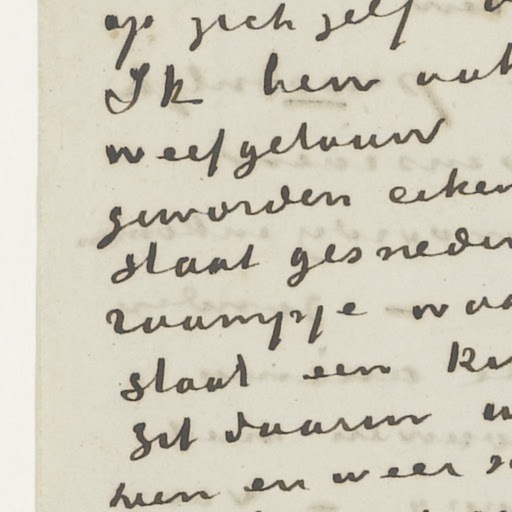 op zich zelf
Ik ben
weefgetouw
geworden eiken
staat gesneden
raampje waa
staat een
zit daarin
heen en weer